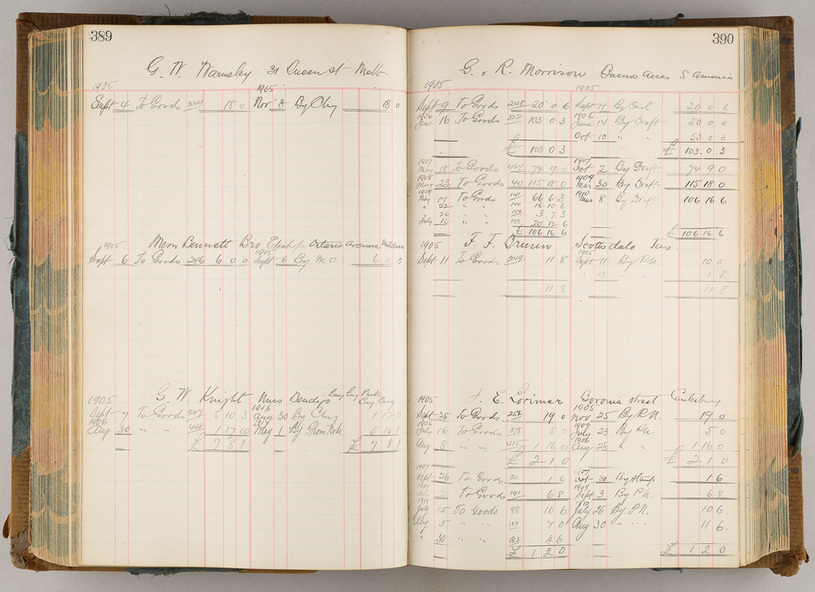 389
G. W. Wamsley 31 Queen st Melb.
1905 1905
Sept 4 To Goods 18 0 Nov By Chq 18 0
1905 Mem Bennett Bro Ontario Avenue Mildura
Sept 6 To Goods 246 6 0 0 Sept 6 By M.O. 6 0 0
1905 G. W. Knight Nurs Bendigo
Sept 7 To Goods 247 5 10 3 Aug 30 By Chq
1906
Aug 30 " " 1 17 10 May 1 By Prom Note 5 16 1
£ 7 8 1 £ 7 8 1
390
G. & R. Morrison Buenos Aires S America
1905 1905
Sept 9 To Goods 248 20 0 6 Sept 11 By Cash 20 0 6
1906 1906
June 16 To Goods 103 0 3 June 14 By Draft 50 0 0
Oct 10 " " 53 0 3
£ 103 0 3 £ 103 0 3
1907 1907
May 18 To Goods 74 9 0 Oct 2 By Draft 74 9 0
1908 1909
May 23 To Goods 40 115 18 0 Mar 30 By Draft 115 18 0
1909 1910
May 17 To Goods 66 6 3 Mar 8 By Draft 106 16 6
" 22 " " 16 10 6
" 26 " " 3 7 3
July 14 " " 20 12 6
£ 106 16 6 £ 106 16 6
1905 Scottsdale Tas.
Sept 11 To Goods 248 11 8 Sept 11 By P.N. 10 0
" 18 " " 1 8
11 8 11 8
1905 F. E. Lorimer Corona Street Canterbury
1905
Sept 25 To Goods 252 19 0 Nov 25 By P.N. 19 0
1906
July 16 To Goods 378 5 0 July 23 By P.N. 5 0
1906
Aug 8 " " 1 16 0 Aug 28 " " 1 16 0
£ 2 1 0 £ 2 1 0
1907 1907
Sept 26 To Goods 20 1 6 Sept 30 By Stamps 1 6
" To Goods 6 8 Sept 3 By P.N. 6 8
July 15 To Goods 90 10 6 July 26 By P.N. 10 6
Aug 5 " " 7 0 Aug 30 " " 11 6
" 30 " " 4 6
£ 1 2 0 £ 1 2 0